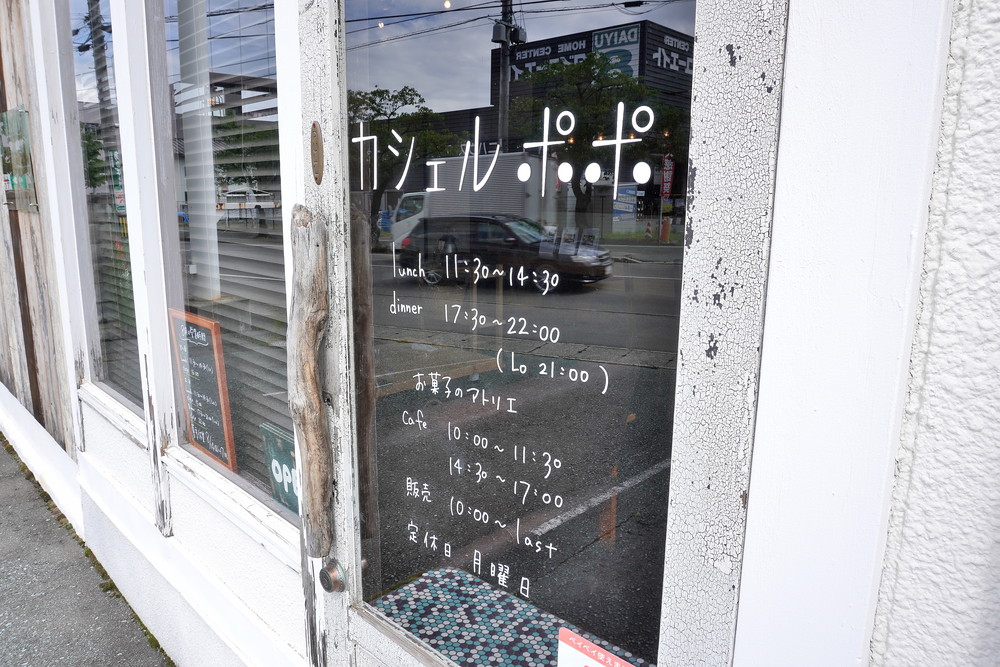 カシェル・ポ・ポ
lunch 11:30～14:30
dinner 17:30～22:00
(Lo 21:00)
お菓子のアトリエ
Cafe 10:00～11:30
14:30～17:00
販売 10:00～last
定休日 月曜日
DAIYU
HOME CENTER